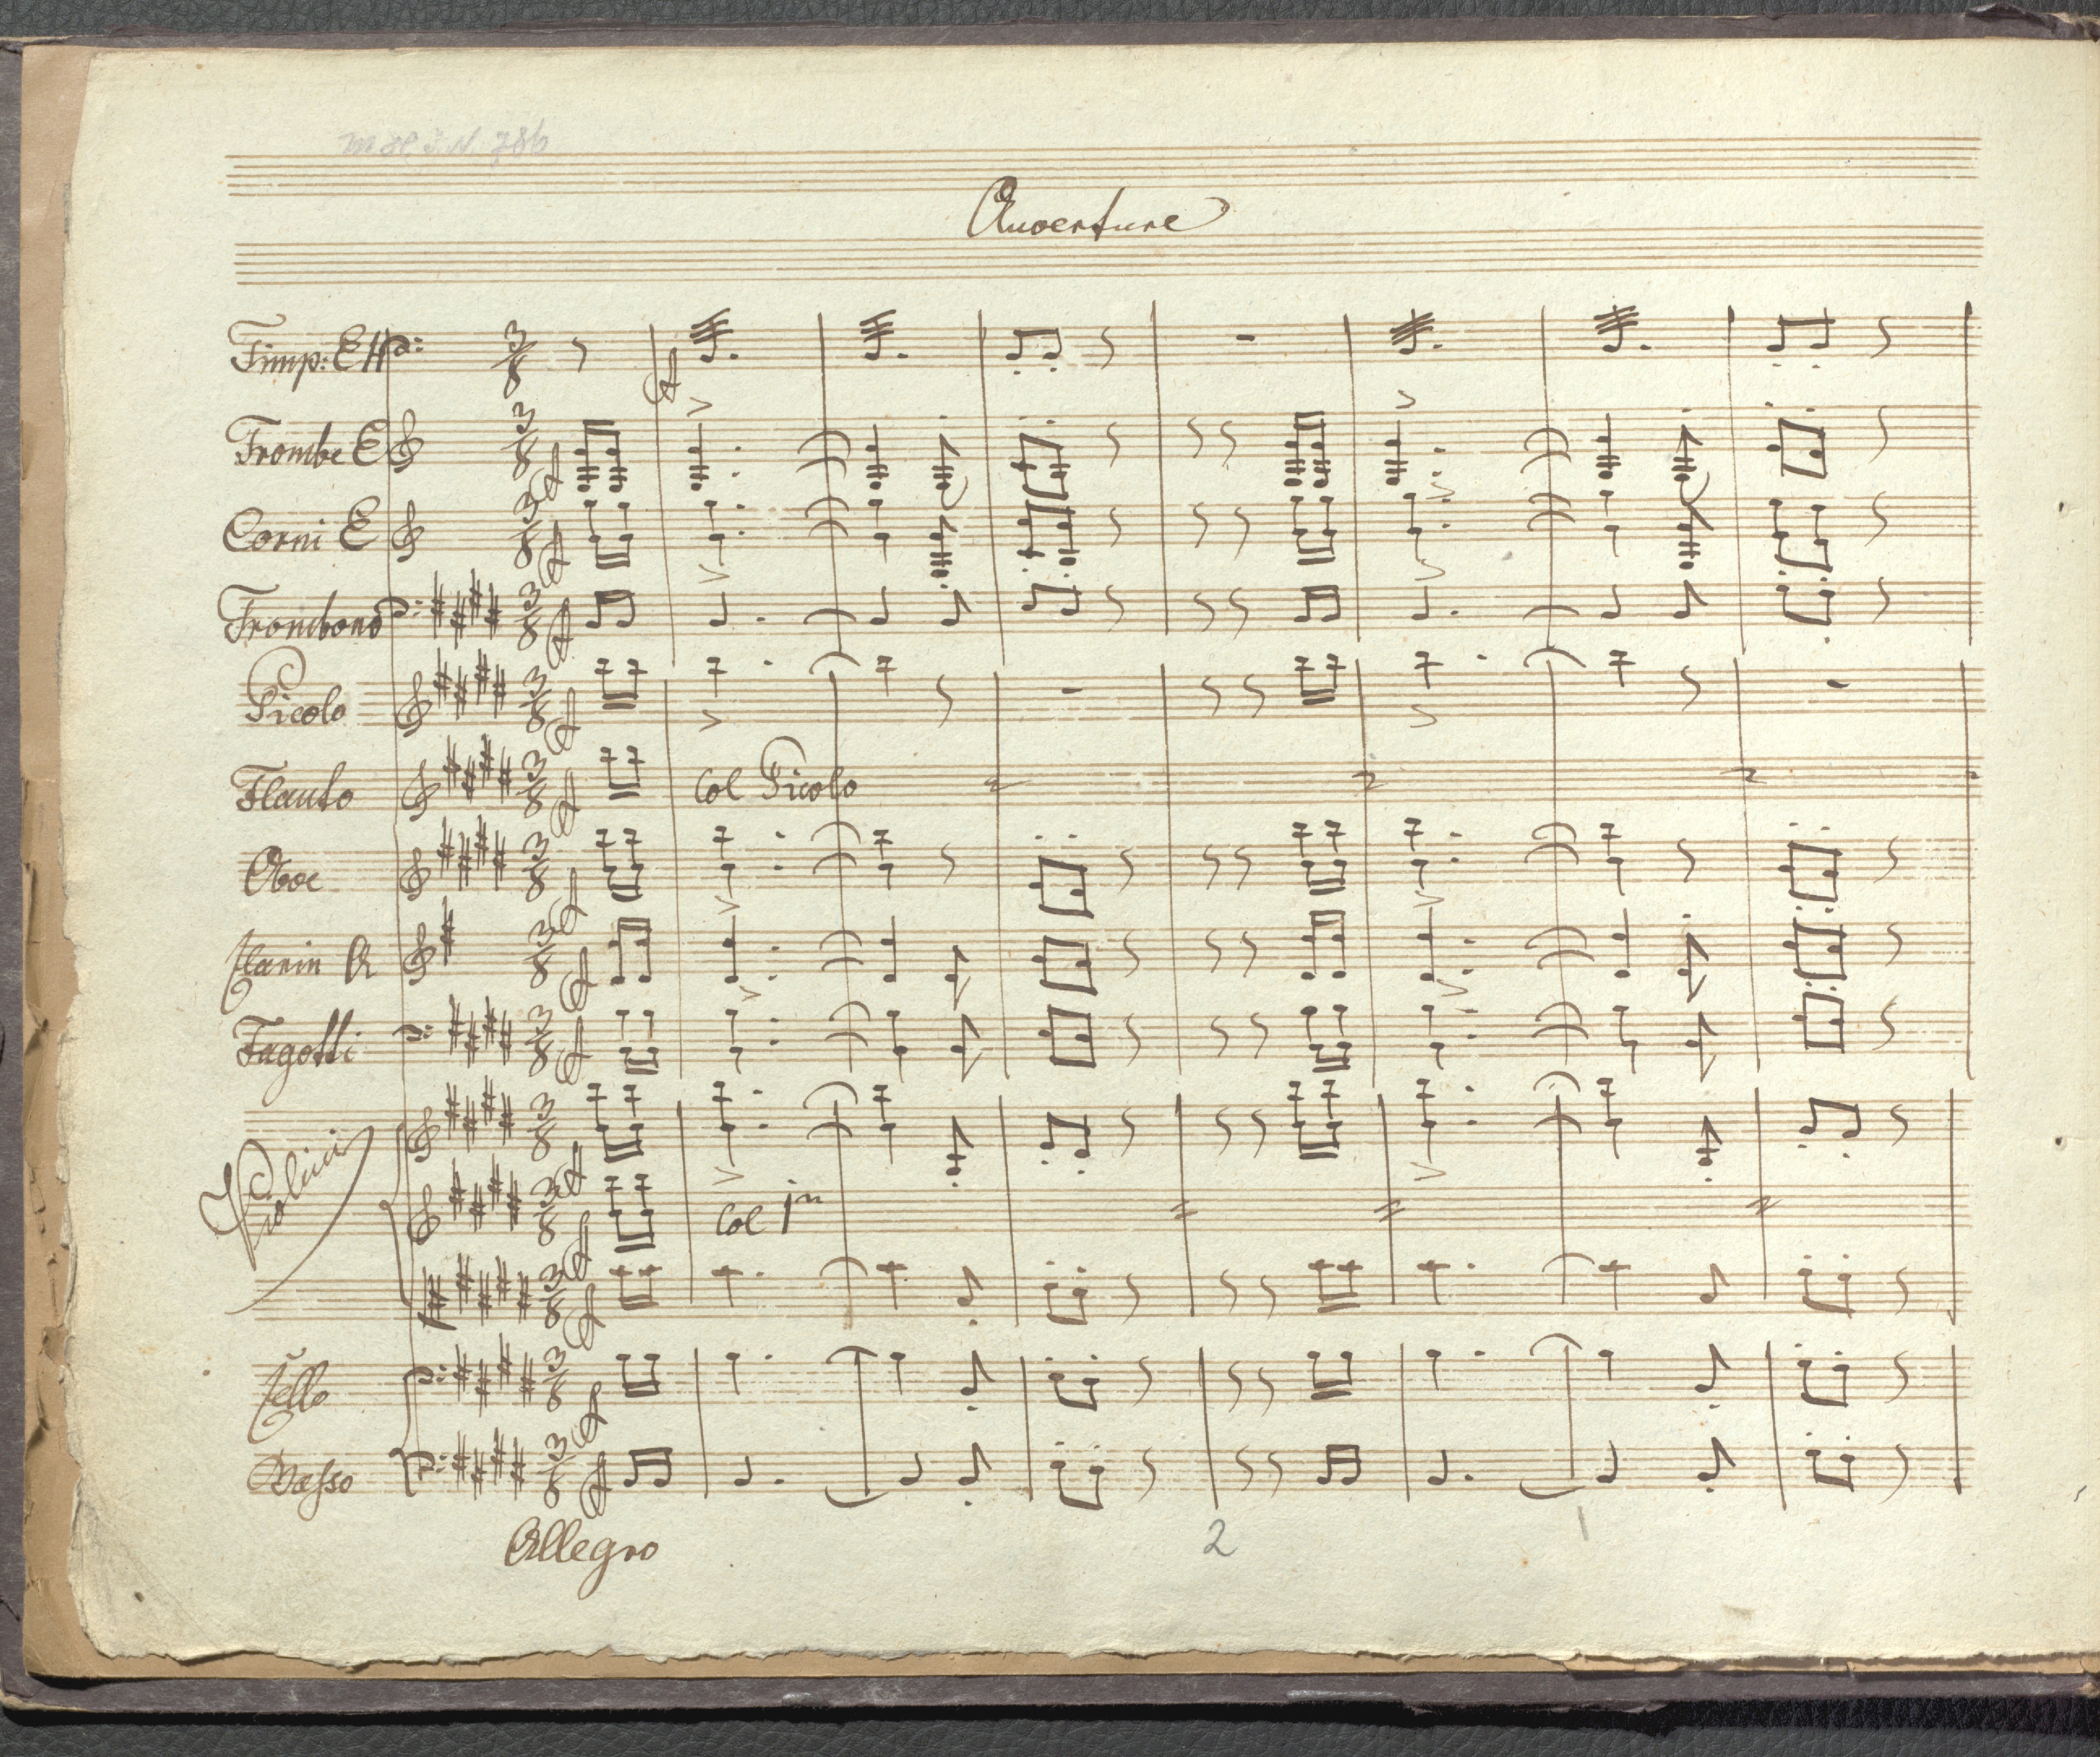 Ouverture
Timp: E H
Trombe E
Corni E
Trombono
Picolo
Flauto
Col Picolo
Oboe
Clarin A
Fagotti
Violini
Col 1mo
Cello
Basso
Allegro
2
1